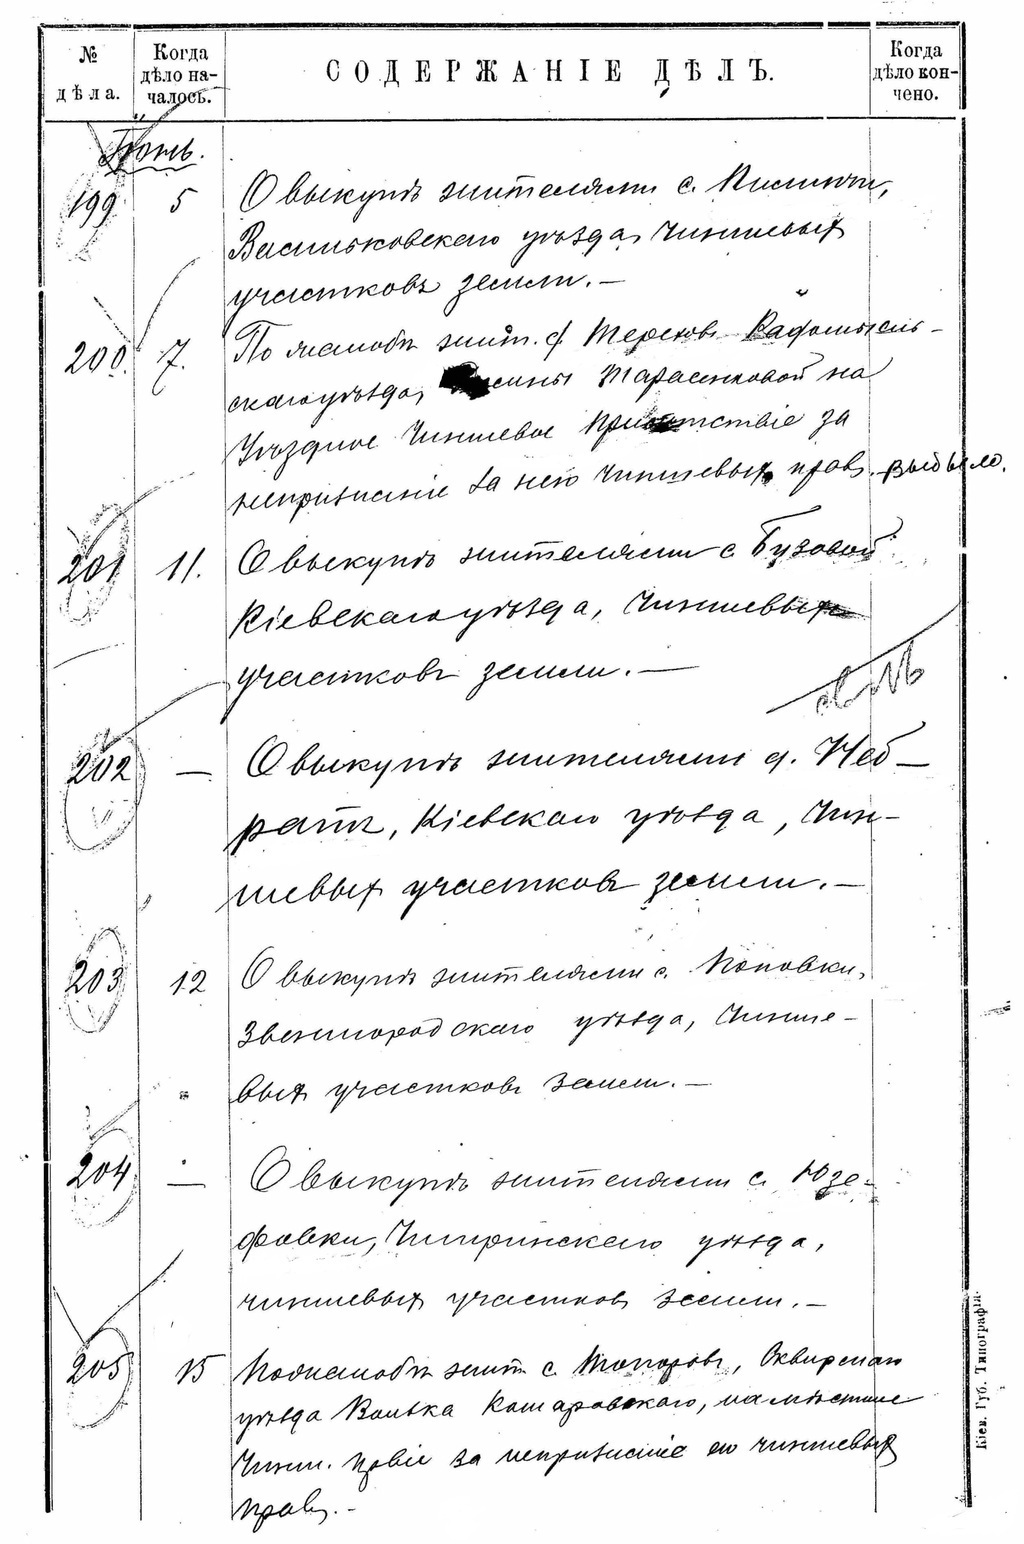 № дѣла.
Когда дѣло началось.
СОДЕРЖАНІЕ ДѢЛЪ.
Когда дѣло кончено.
Іюнь.
199 5 О выкупѣ жителями с.
Васильковскаго уѣзда, чиншевыхъ
участковъ земли. —
200. 7. По жалобѣ жит. с. Радомысль-
скаго уѣзда, Тарасенковой на
Уѣздное Чиншевое Присутствіе за
непризнаніе за нею чиншевыхъ правъ. выбыло.
201 11. О выкупѣ жителями с. Бузовой
Кіевскаго уѣзда, чиншевыхъ
участковъ земли. —
202 — О выкупѣ жителями д. Неб-
ратъ, Кіевскаго уѣзда, чин-
шевыхъ участковъ земли. —
203 12 О выкупѣ жителями с. Поповки,
Звенигородскаго уѣзда, чинше-
выхъ участковъ земли. —
204 — О выкупѣ жителями с. Юзе-
фовки, Чигиринскаго уѣзда,
чиншевыхъ участковъ земли. —
205 15 По жалобѣ жит. с. Топоровъ, Сквирскаго
уѣзда Комаровскаго, на мѣстное
Чинш. за непризнаніе его чиншевыхъ
правъ. —
Кіев. Губ. Типографія.